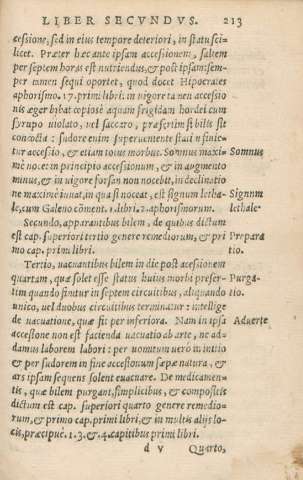 LIBER SECVNDVS. 213
cessione, sed in eius tempore deteriori, in statu sci-
licet. Præter hæc ante ipsam accessionem, saltem
per septem horas est nutriendus, & post ipsam: sem-
per inuen sequi oportet, quod docet Hipocrates
aphorismo. 17. primi libri: in uigore tamen accessio
nis æger bibat copiosè aquam frigidam hordei cum
syrupo uiolato, uel saccaro, præsertim si bilis sit
concocta: sudore enim superueniente stati n finie-
tur accessio, & etiam totus morbus. Somnus maxi- Somnus
mè nocet in principio accessionum, & in augmento
minus, & in uigore forsan non nocebit, in declinatio
ne maximè iuuat, in qua si noceat, est signum letha- Signum
le, cum Galeno cōment. 1. libri. 2. aphorismorum. lethale
Secundo, apparantibus bilem, de quibus dictum
est cap. superiori tertio genere remediorum, & pri Prepara
mo cap. primi libri. tio.
Tertio, uacuantibus bilem in die post acessionem
quartam, quæ solet esse status huius morbi preser- Purga-
tim quando finitur in septem circuitibus, aliquando tio.
unico, uel duobus circuitibus terminatur: intellige
de uacuatione, quæ fit per inferiora. Nam in ipsa Aduerte
accessione non est facienda uacuatio ab arte, ne ad-
damus laborem labori: per uomitum uero in initio
& per sudorem in fine accessionum sæpe natura, &
ars ipsam sequens solent euacuare. De medicamen-
tis, quæ bilem purgant, simplicibus, & compositis
dictum est cap. superiori quarto genere remedio-
rum, & primo cap. primi libri, & in multis alijs lo-
cis, præcipuè. 1. 3. & 4. capitibus primi libri.
d v Quarto,